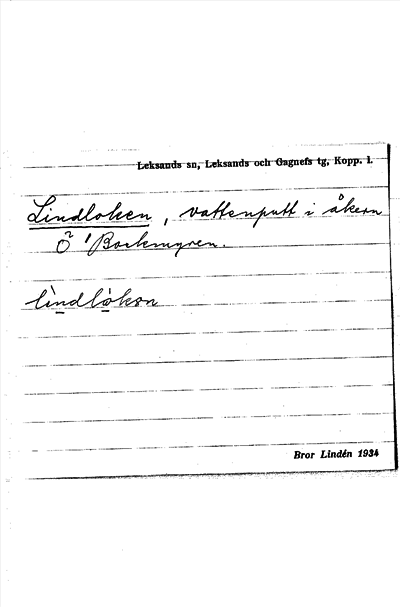 Leksands sn, Leksands och Gagnefs tg, Kopp. l.
Lindloken, vattenputt i åkern
Ö ¹Backmyren.
lìndlòkən
Bror Lindén 1934